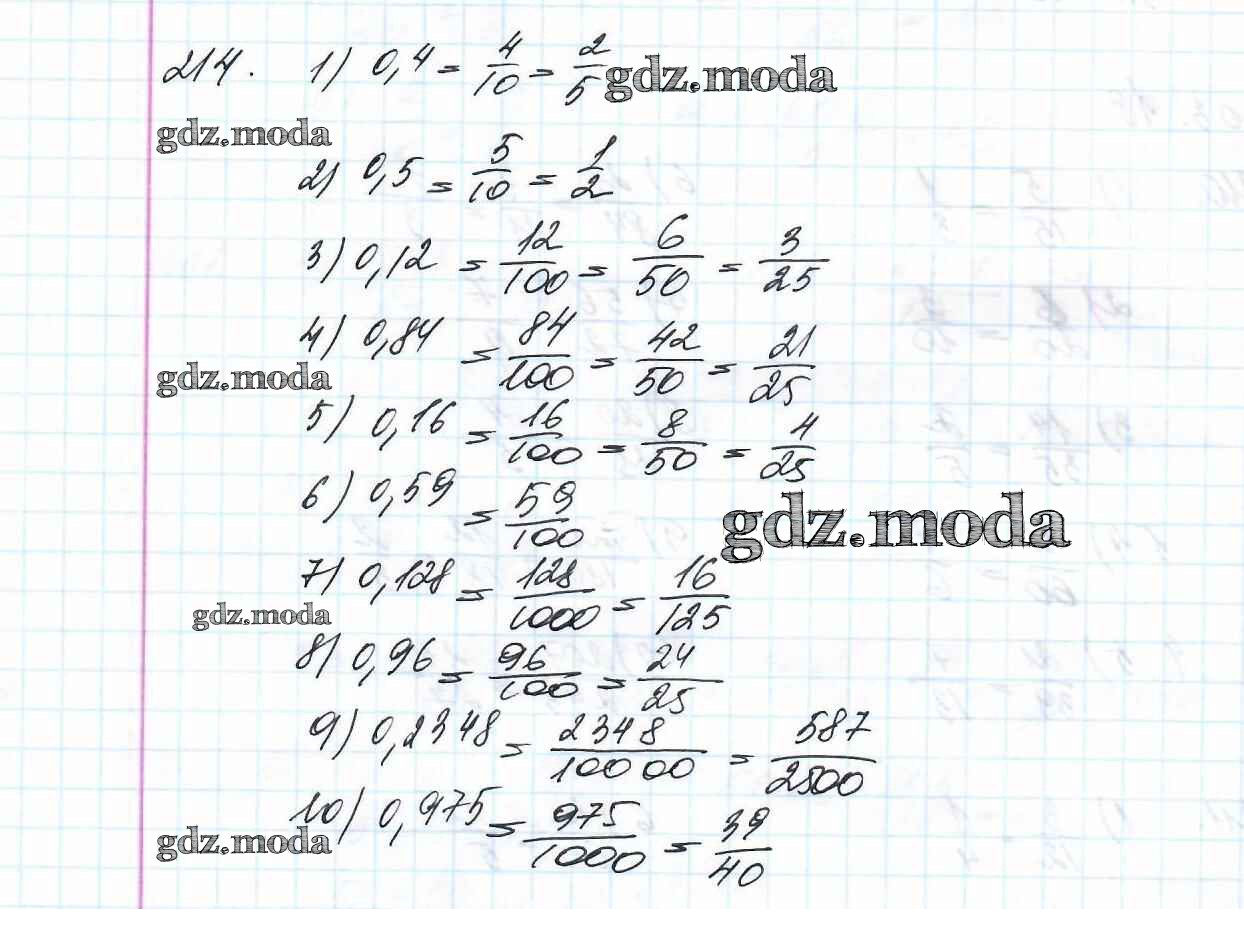 214. 1) 0,4 = 4/10 = 2/5 gdz.moda
gdz.moda
2) 0,5 = 5/10 = 1/2
3) 0,12 = 12/100 = 6/50 = 3/25
4) 0,84 = 84/100 = 42/50 = 21/25
gdz.moda
5) 0,16 = 16/100 = 8/50 = 4/25
6) 0,59 = 59/100
gdz.moda
7) 0,128 = 128/1000 = 16/125
gdz.moda
8) 0,96 = 96/100 = 24/25
9) 0,2348 = 2348/10000 = 587/2500
10) 0,975 = 975/1000 = 39/40
gdz.moda